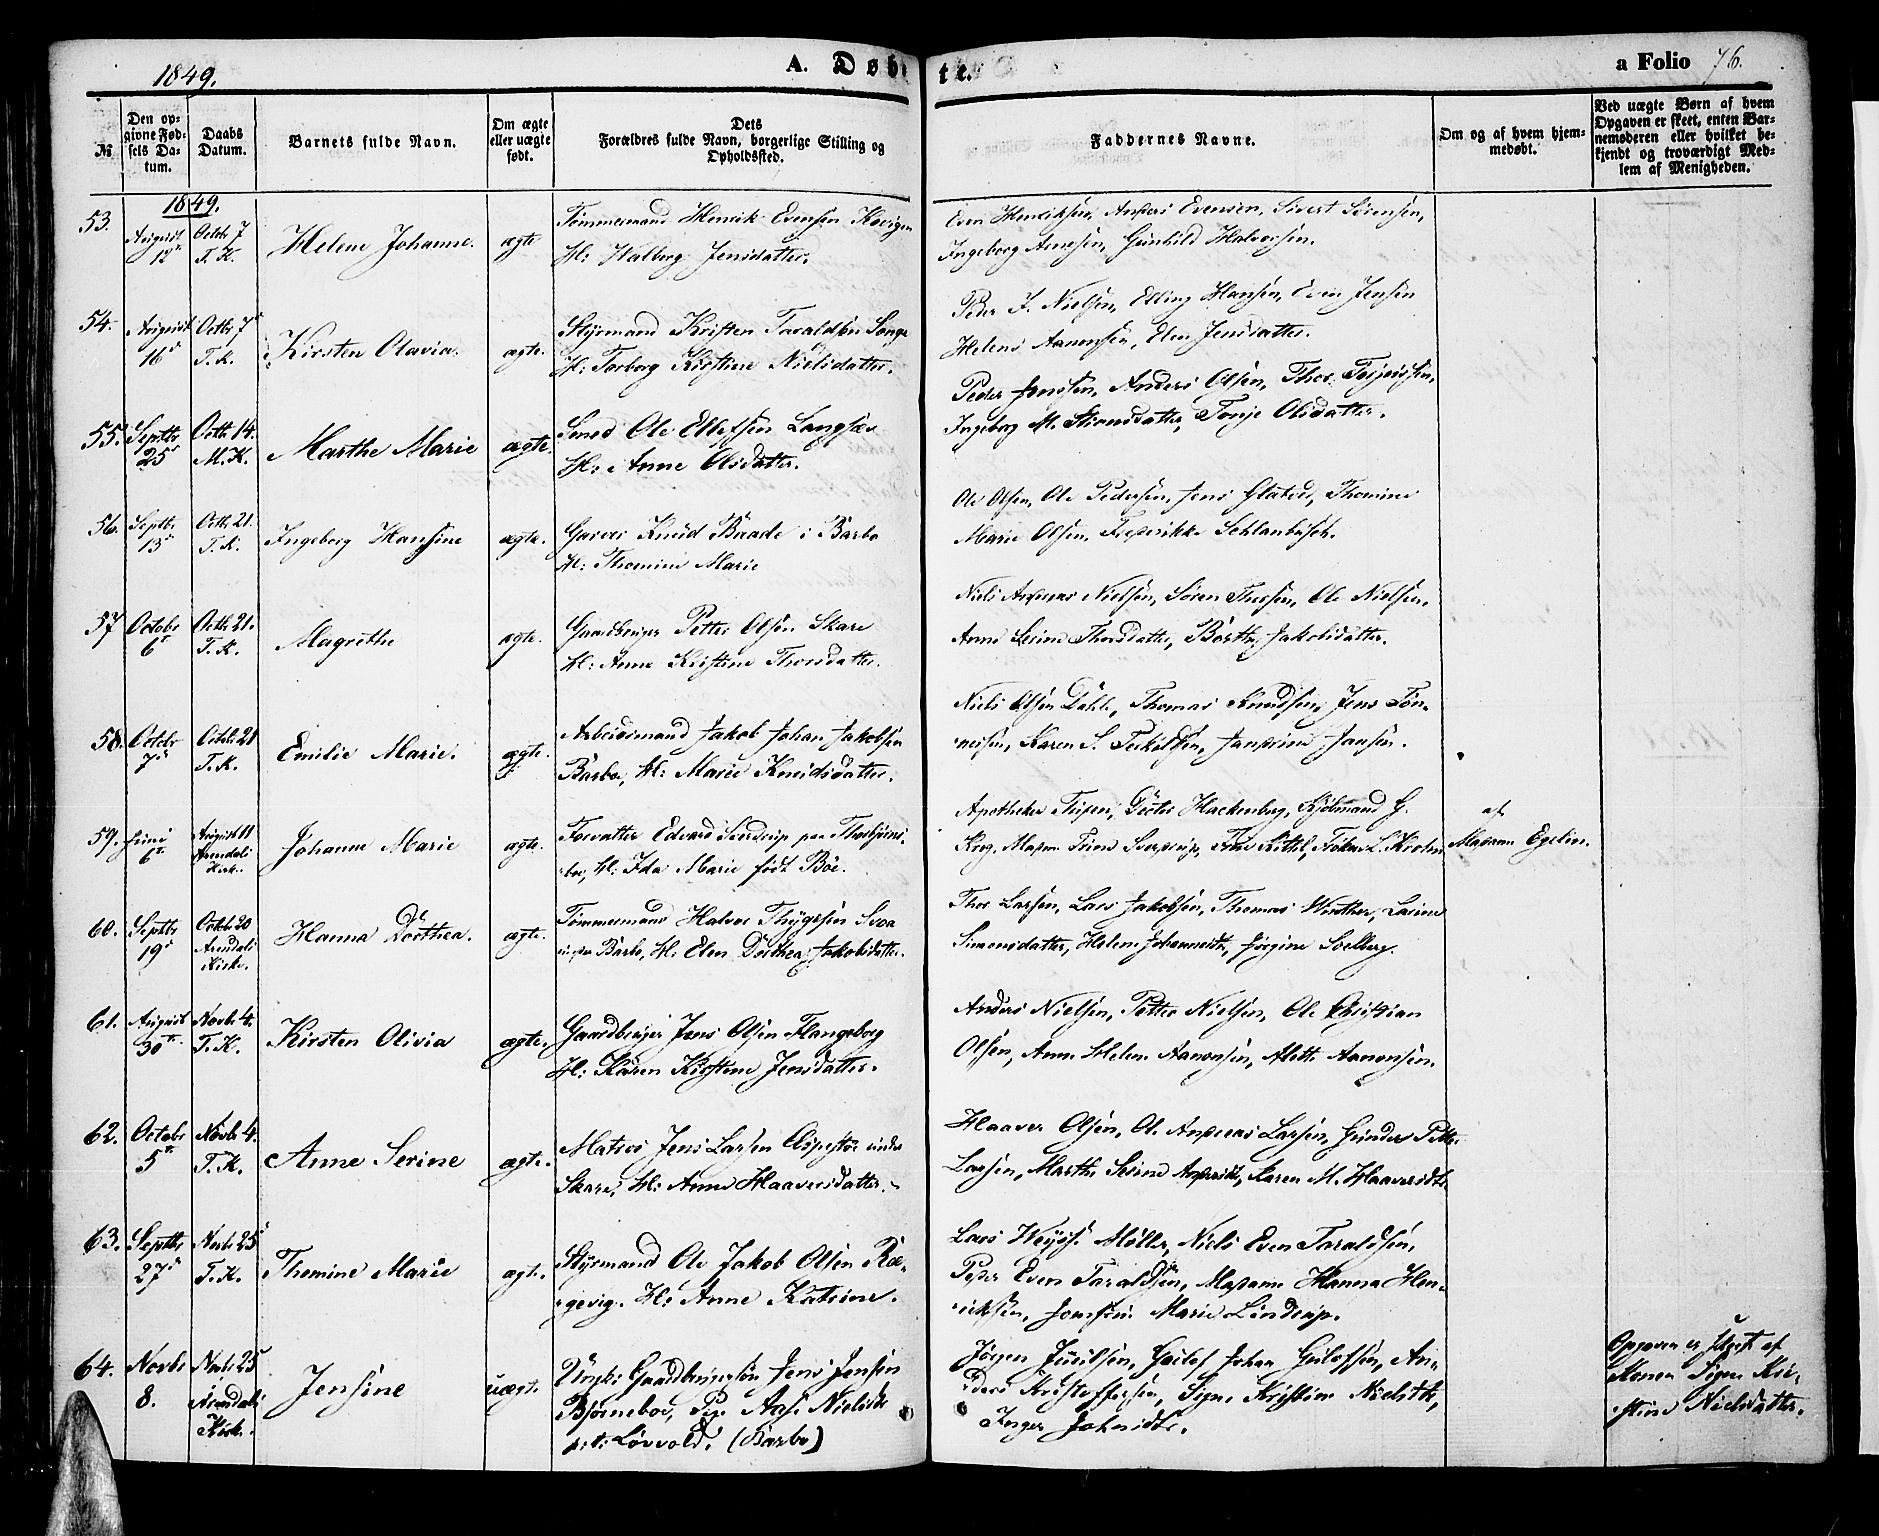 1849.
A. Døbte.
a Folio 76.
№
Den opgivne Fødsels Datum.
Daabs Datum.
Barnets fulde Navn.
Om ægte eller uægte født.
Dets Forældres fulde Navn, borgerlige Stilling og Opholdssted.
Faddernes Navne.
Om og af hvem hjemmedøbt.
Ved uægte Børn af hvem Opgaven er skeet, enten Barnemoderen eller hvilket bekjendt og troværdigt Medlem af Menigheden.
1849.
53. August 12 Octbr 7 T. K. Helene Johanne. ægte
Tømmermand Henrik Evensen
H: Halberg Jensdatter.
Even Henriksen, Anders Evensen, Sivert Sørensen,
Ingeborg Arnesen, Gunhild Halvorsen.
54. August 16 Octbr 7 T. K. Kirsten Olavia. ægte.
Styrmand Kristen Taraldsen Songe
H: Torborg Kirstine Nielsdatter.
Peder J. Nielsen, Elling Hansen, Even Jensen
Helene Aanensen, Elen Jensdatter.
55. Septbr 25 Octbr 14. M. K. Marthe Marie ægte.
Smed Ole Ellefsen Langsæv
H: Anne Olsdatter.
Peder Jensen, Anders Olsen, Thor Terjersen,
Ingeborg M. Simonsdatter, Tonje Olsdatter.
56. Septbr. 13 Octbr 21. T. K. Ingeborg Hansine ægte.
Garver Knud Baade i Barbo
H: Thomine Marie
Ole Olsen, Ole Pedersen, Jens Glatved, Thomine
Marie Olsen, Frederikke Schlanbusch.
57 Octobr 6 Octbr 21. T. K. Magrethe ægte.
Gaardbruger Petter Olsen Skare
H: Anne Kristine Thorsdatter.
Niels Andreas Nielsen, Søren Thorsen, Ole Nielsen,
Anne Serine Thorsdatter, Børthe Jakobsdatter.
58. Octobr 7 Octobr 21 T. K. Emilie Marie. ægte.
Arbeidsmand Jakob Johan Jakobsen
Barbo, H: Marie Knudsdatter.
Niels Olsen Dahle, Thomas Knudsen, Jens Tøn-
nesen, Karen S. Terkildsen, Jansine Jansen.
59. Juni 6 August 11 Arendals Kirk. Johanne Marie ægte.
Forvalter Edvard Sverdrup paa Thorbjørns-
boe, H: Ida Marie født Böe.
Apotheker Tusen, Dr. Hackenberg, Kjøbmand G.
Krog, Madam Trine Sverdrup,
af
Madame Egelin.
60. Septbr 19 Octobr 20 Arendals Kirke. Hanna Dorthea. ægte.
Tømmermand Halvor Thygesen Svoa
under Barbo, H: Elen Dorthea Jakobsdatter.
Thor Larsen, Lars Jakobsen, Thomas Winther, Larine
Simonsdatter, Helene Johannesdtr, Jørgine Solberg.
61. August 30 Novbr 4. T. K. Kirsten Olivia ægte.
Gaardbruger Jens Olsen Flangeborg
H: Karen Kirstine Jensdatter.
Anders Nielsen, Petter Nielsen, Ole Christian
Olsen, Anne Helene Aanonsen, Alette Aanonsen.
62. Octobr 5 Novbr 4. T. K. Anne Serine ægte.
Matros Jens Larsen Ospestø under
Skare, H: Anne Haaversdatter.
Haaver Olsen, Ole Andreas Larsen, Gunder Petter
Larsen, Marthe Serine Andersdtr, Karen M. Haaversdtr.
63. Septbr 27 Novbr 25 T. K. Thomine Marie ægte.
Styrmand Ole Jakob Olsen Ræ-
gevig. H: Anne Katrine.
Lars Weysse Møller, Niels Even Taraldsen,
Peder Even Taraldsen, Madame Hanna Hen-
riksen, Jomfru Marie Lindrup.
64. Novbr 8. Novbr 25 i Arendals Kirk. Jensine uægt.
Ungk: Gaardbrugersøn Jens Jensen
Bjørneboe, Pige Aase Nielsdtr
p: t: Løvvold. (Barbo)
Jørgen Juulsen, Geilof Johan Geilofsen, An-
ders Kristoffersen, Signe Kristine Nielsdtr,
Inger Johnsdtr.
Opgaven er skeet af
Konen Signe Kri-
stine Nielsdatter.